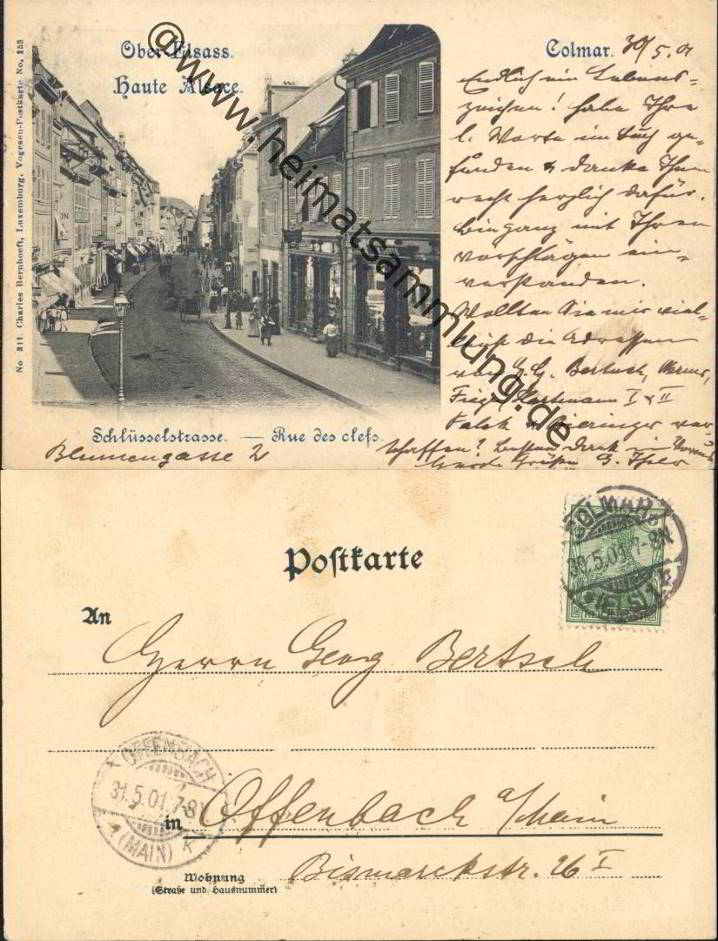 Ober-Elsass.
Haute Alsace.
No 211 Charles Bernhoeft, Luxemburg, Vogesen-Postkarte No. 155
www.heimatsammlung.de
Colmar. 30/5.01
Endlich ein Lebens-
zeichen! habe Ihre
l. Worte im Buch ge-
funden & danke Ihnen
recht herzlich dafür.
mit Ihren
Vorschlägen ein-
verstanden.
Wollten Sie mir viel-
leicht die Adressen
von
Hartmann I & II
Schlüsselstrasse. — Rue des clefs.
Blumengasse 2
schaffen? besten Dank im Voraus
Postkarte
COLMAR
30.5.01 7-8N
(ELS) 1
An
Herrn Georg Bertsch
OFFENBACH
31.5.01.7-8V
(MAIN)
in Offenbach a/Main
Wohnung
(Straße und Hausnummer)
Bismarckstr. 26 I